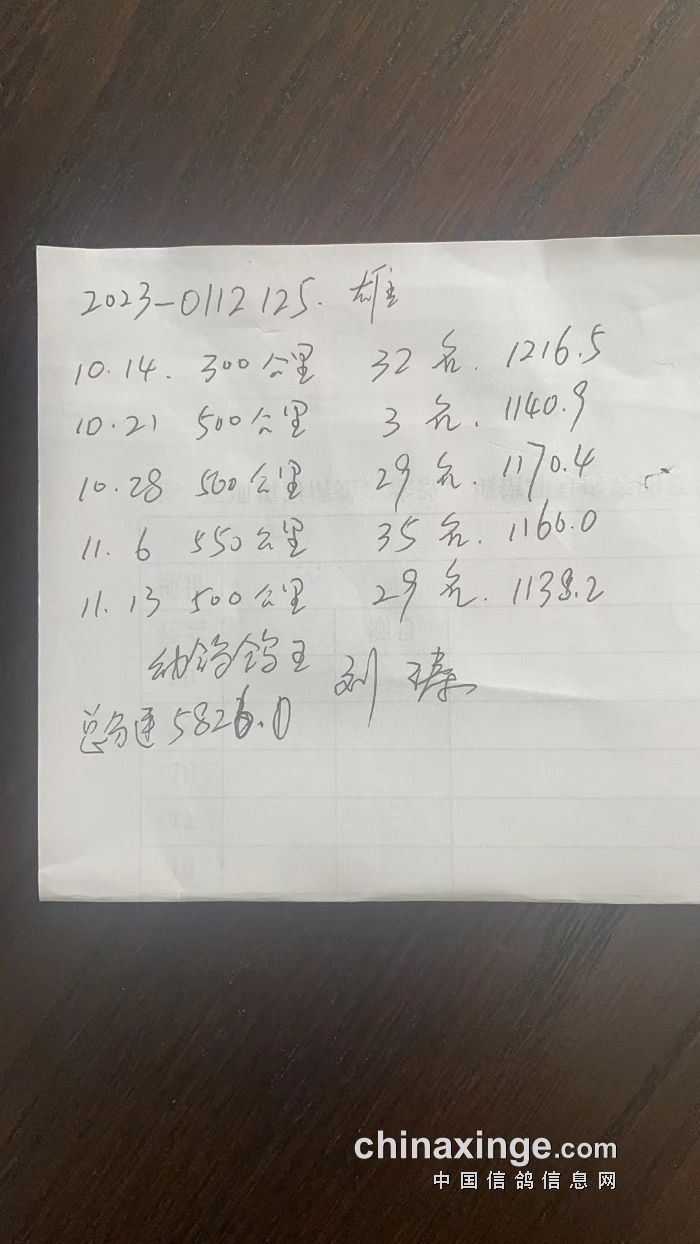 2023-0112125. 雄
10.14. 300公里 32名. 1216.5
10.21 500公里 3名. 1140.9
10.28 500公里 29名. 1170.4
11.6 550公里 35名. 1160.0
11.13 500公里 29名. 1138.2
幼鸽鸽王 刘
总分速 5826.0
chinaxinge.com
中国信鸽信息网